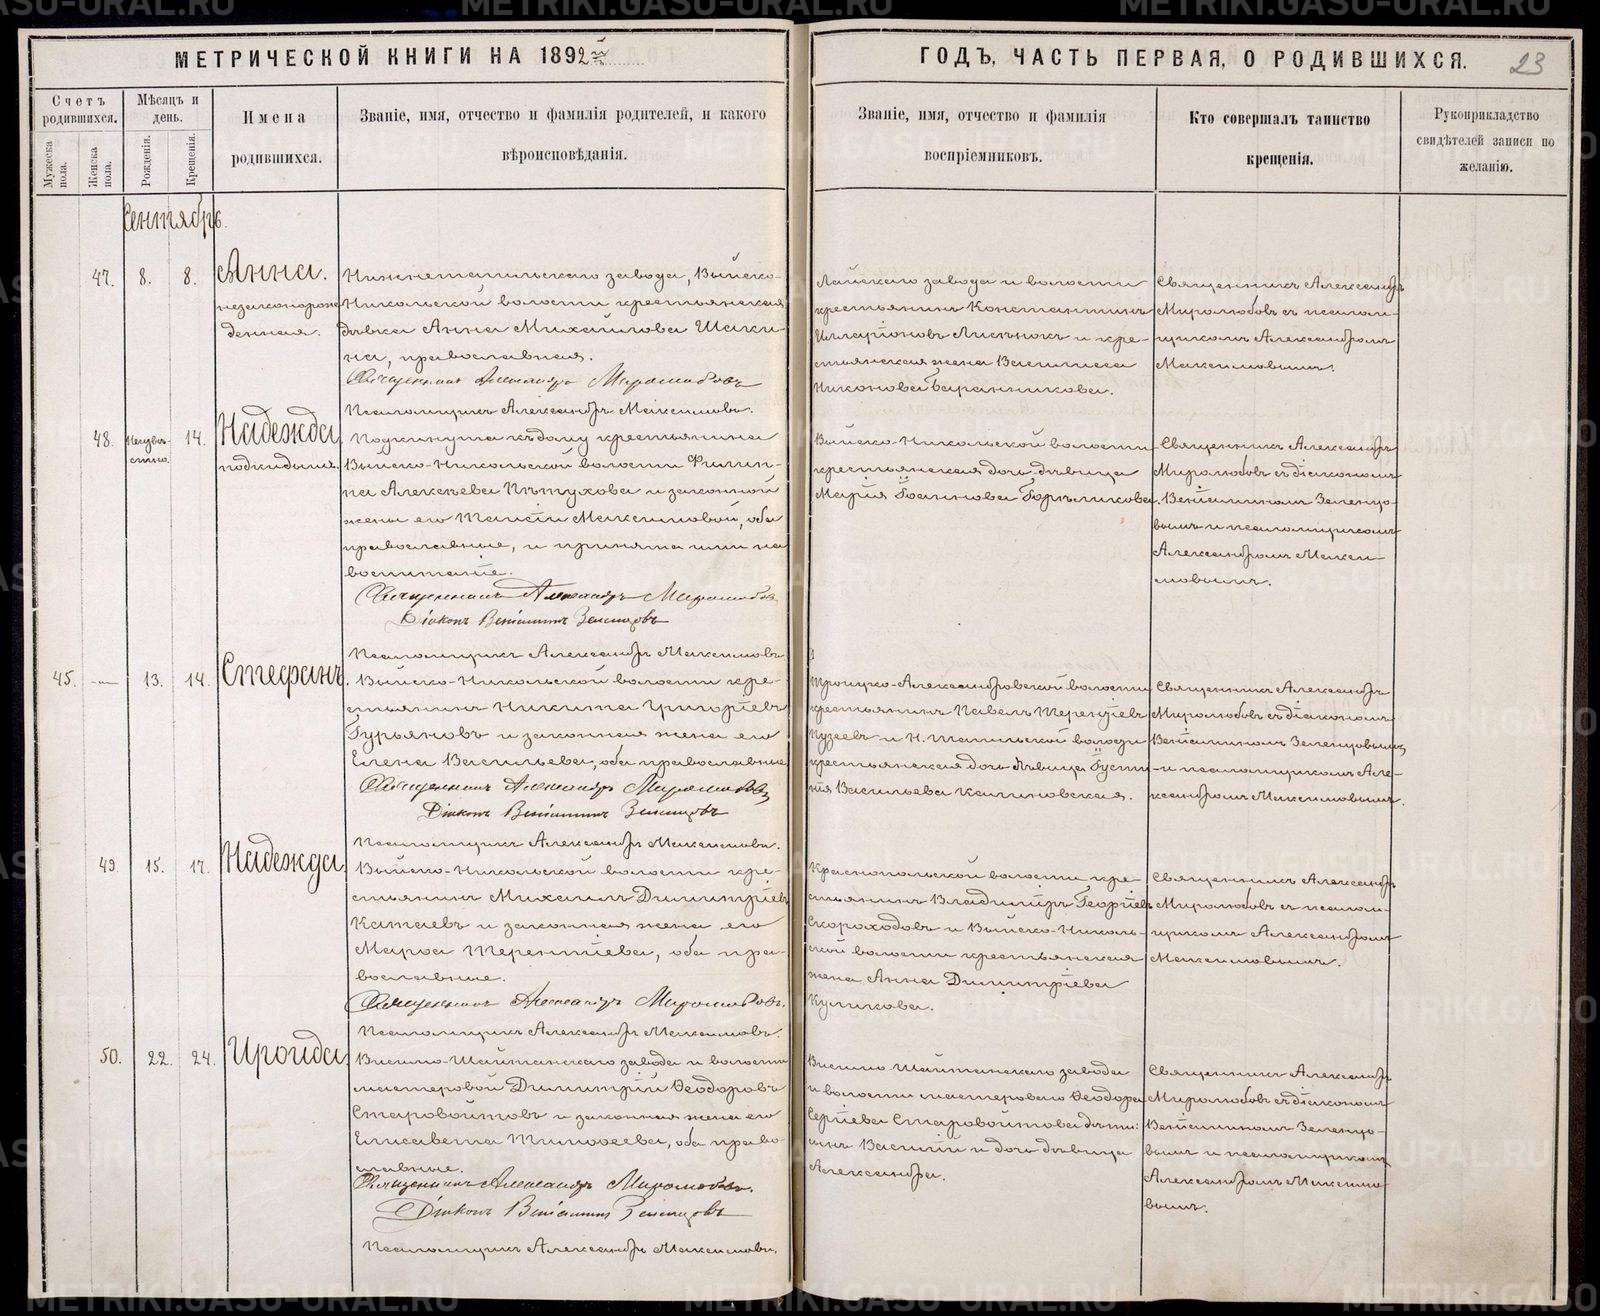 МЕТРИЧЕСКОЙ КНИГИ НА 1892й
ГОДЪ, ЧАСТЬ ПЕРВАЯ, О РОДИВШИХСЯ.
23
Счетъ родившихся.
Мужеска пола.
Женска пола.
Мѣсяцъ и день.
Рожденія.
Крещенія.
Имена
родившихся.
Званіе, имя, отчество и фамилія родителей, и какого
вѣроисповѣданія.
Званіе, имя, отчество и фамилія
воспріемниковъ.
Кто совершалъ таинство
крещенія.
Рукоприкладство
свидѣтелей записи по
желанію.
Сентябрь.
47. 8. 8. Анна.
незаконорож-
денная.
Нижнетагильскаго завода, Выйско-
Никольской волости крестьянская
дѣвка Анна Михайлова Шаки-
на, православная.
Священникъ Александръ Миролюбовъ
Псаломщикъ Александръ Максимовъ.
Лайскаго завода и волости
крестьянинъ Константинъ
Илларіоновъ и кре-
стьянская жена Василиса
Никонова Баранникова.
Священникъ Александръ
Миролюбовъ съ псалом-
щикомъ Александромъ
Максимовымъ.
48. Неизвѣ-
стно. 14. Надежда,
подкидышъ.
Подкинута къ дому крестьянина
Выйско-Никольской волости Филип-
па Алексѣева Пѣтухова и законной
жены его Таисіи Максимовой, оба
православные, и принята ими на
воспитаніе.
Священникъ Александръ Миролюбовъ
Діаконъ Веніаминъ Зеленцовъ
Псаломщикъ Александръ Максимовъ
Выйско-Никольской волости
крестьянская дочь дѣвица
Марія Іоаннова Горѣликова.
Священникъ Александръ
Миролюбовъ съ діакономъ
Веніаминомъ Зеленцо-
вымъ и псаломщикомъ
Александромъ Макси-
мовымъ.
45. — 13. 14. Стефанъ.
Выйско-Никольской волости кре-
стьянинъ Никита Григоріевъ
Гурьяновъ и законная жена его
Елена Васильева, оба православные
Священникъ Александръ Миролюбовъ
Діаконъ Веніаминъ Зеленцовъ
Псаломщикъ Александръ Максимовъ.
Троицко-Александровской волости
крестьянинъ Павелъ Терентіевъ
Пузеевъ и Н. Тагильской волости
крестьянская дочь дѣвица Іусти-
нія Васильева Калиновская.
Священникъ Александръ
Миролюбовъ съ діакономъ
Веніаминомъ Зеленцовымъ
и псаломщикомъ Але-
ксандромъ Максимовымъ.
49. 15. 17. Надежда.
Выйско-Никольской волости кре-
стьянинъ Михаилъ Димитріевъ
Катаевъ и законная жена его
Марѳа Терентіева, оба пра-
вославные.
Священникъ Александръ Миролюбовъ.
Псаломщикъ Александръ Максимовъ.
Краснопольской волости кре-
стьянинъ Владиміръ Георгіевъ
Скороходовъ и Выйско-Николь-
ской волости крестьянская
жена Анна Димитріева
Куликова.
Священникъ Александръ
Миролюбовъ съ псалом-
щикомъ Александромъ
Максимовымъ.
50. 22. 24. Ироида.
Висимо-Шайтанскаго завода и волости
мастеровой Димитрій Ѳеодоровъ
Старовойтовъ и законная жена его
Елисавета Тимоѳеева, оба право-
славные.
Священникъ Александръ Миролюбовъ.
Діаконъ Веніаминъ Зеленцовъ
Псаломщикъ Александръ Максимовъ.
Висимо-Шайтанскаго завода
и волости мастероваго Ѳеодора
Сергіева Старовойтова дѣти:
сынъ Василій и дочь дѣвица
Александра.
Священникъ Александръ
Миролюбовъ съ діакономъ
Веніаминомъ Зеленцо-
вымъ и псаломщикомъ
Александромъ Максимо-
вымъ.
METRIKI.GASO-URAL.RU